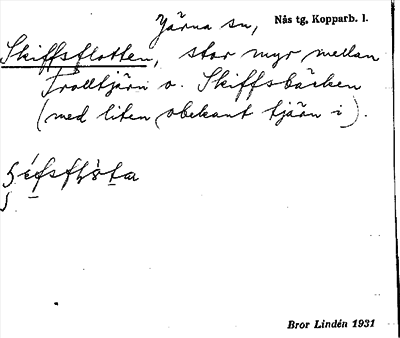 Järna sn, Nås tg, Kopparb. l.
Skiffsflotten, stor myr mellan
Trolltjärn o. Skiffsbäcken
(med liten obekant tjärn i).
Bror Lindén 1931